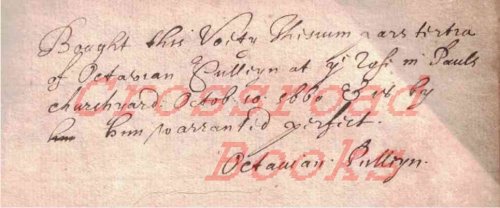 Bought this Voetij Thesium pars tertia
of Octavian Pulleyn at ye Rose in Pauls
churchyard. Octob. 19. 1660 & is by
him warranted perfect.
Octavian. Pulleyn.
Crossroad
Books